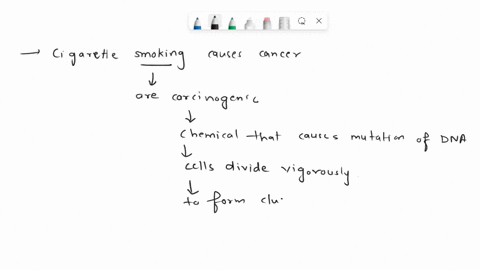 → Cigarette smoking causes cancer
are carcinogenic
chemical that causes mutation of DNA
cells divide vigorously
to form clu